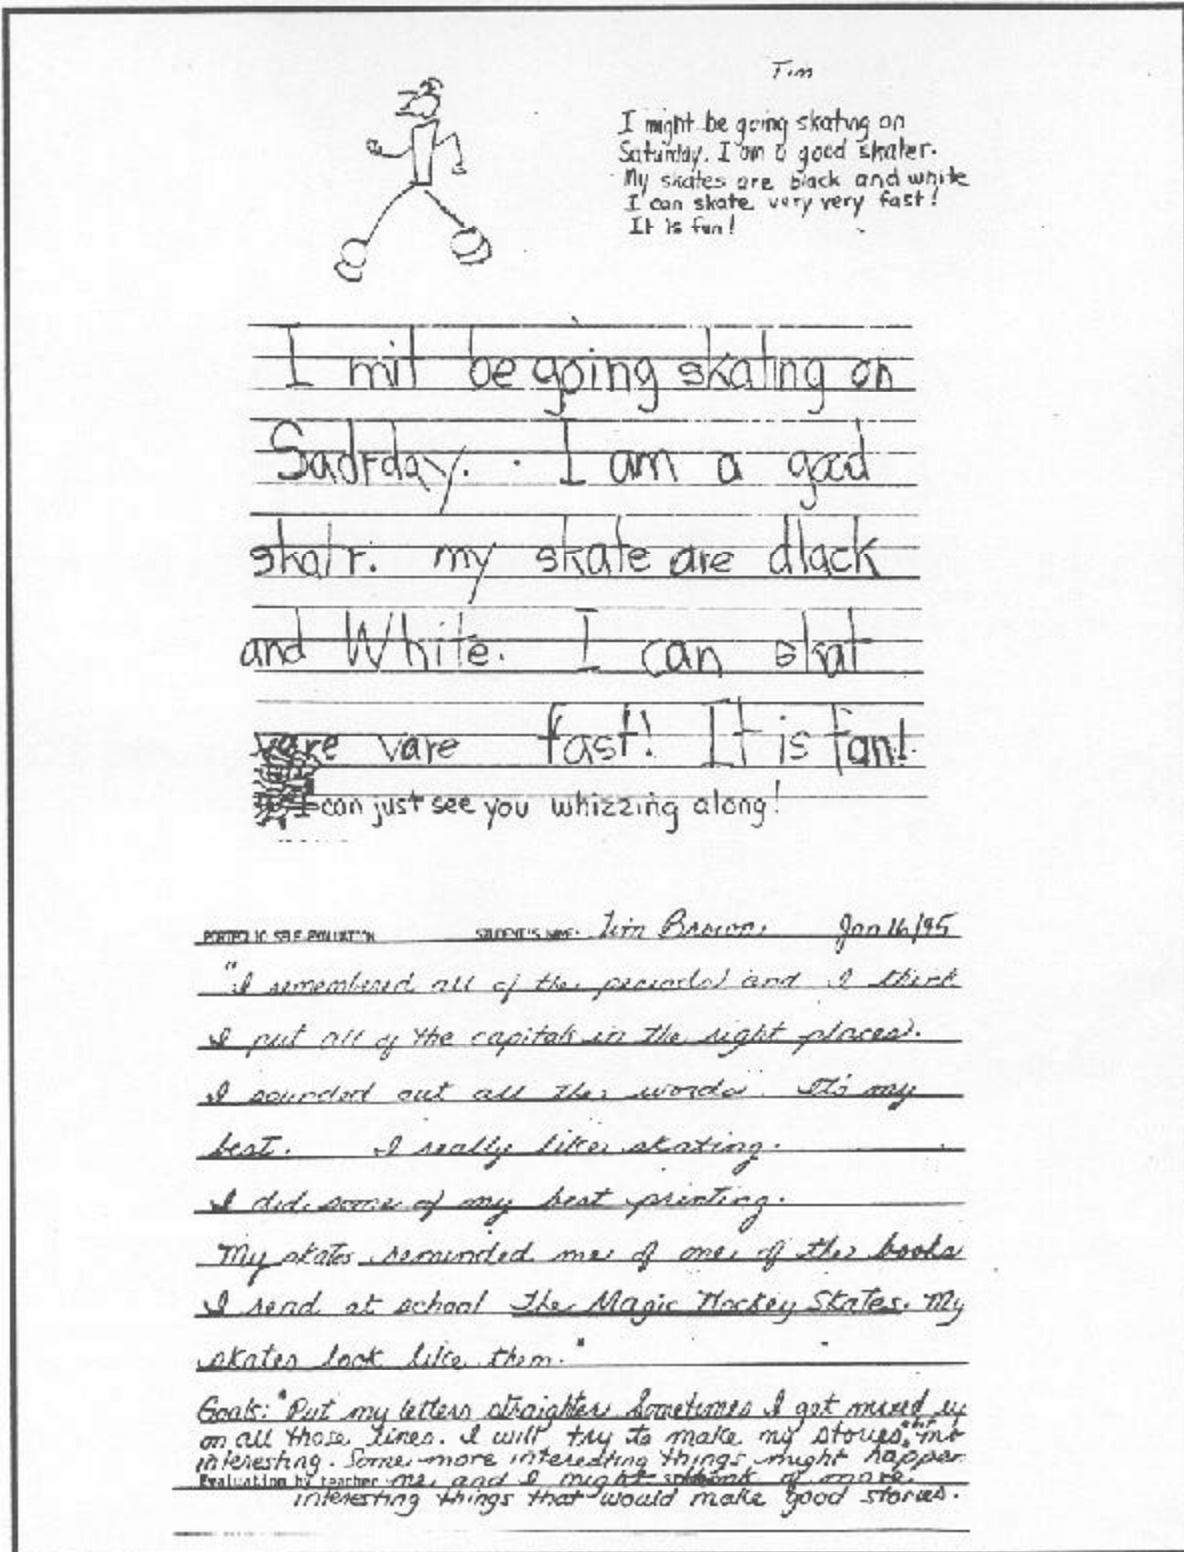 Tim
I might be going skating on
Saturday. I am a good skater.
My skates are black and white
I can skate very very fast!
It is fun!
I mit be going skating on
Sadrday. I am a good
skatr. my skate are dlack
and White. I can skat
vare vare fast! It is fan!
I can just see you whizzing along!
PORTFOLIO SELF-EVALUATION STUDENT'S NAME: Tim Brown Jan 16/95
"I remembered all of the periods and I think
I put all of the capitals in the right places.
I sounded out all the words. It's my
best. I really like skating.
I did some of my best printing.
My skates reminded me of one of the books
I read at school The Magic Hockey Skates. My
skates look like them."
Goals: "Put my letters straighter. Sometimes I get mixed up
on all those lines. I will try to make my stories
interesting. Some more interesting things might happen
Evaluation by teacher me, and I might think of more
interesting things that would make good stories.